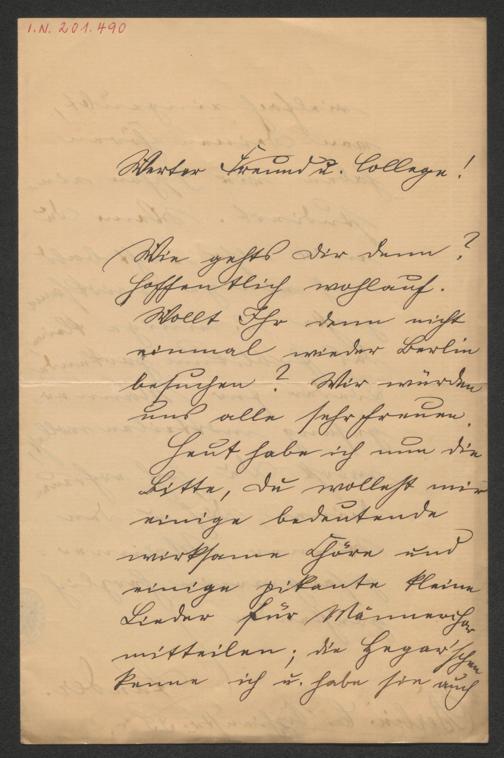 I.N. 201.490
Werter Freund u. College!
Wie gehts Dir denn?
Hoffentlich wohlauf.
Wollt Ihr denn nicht
einmal wieder Berlin
besuchen? Wir würden
uns alle sehr freuen.
Heut habe ich nun die
Bitte, Du wollest mir
einige bedeutende
wirksame Chöre und
einige pikante kleine
Lieder für Männerchor
mitteilen; die Hegar'schen
kenne ich u. habe sie auch